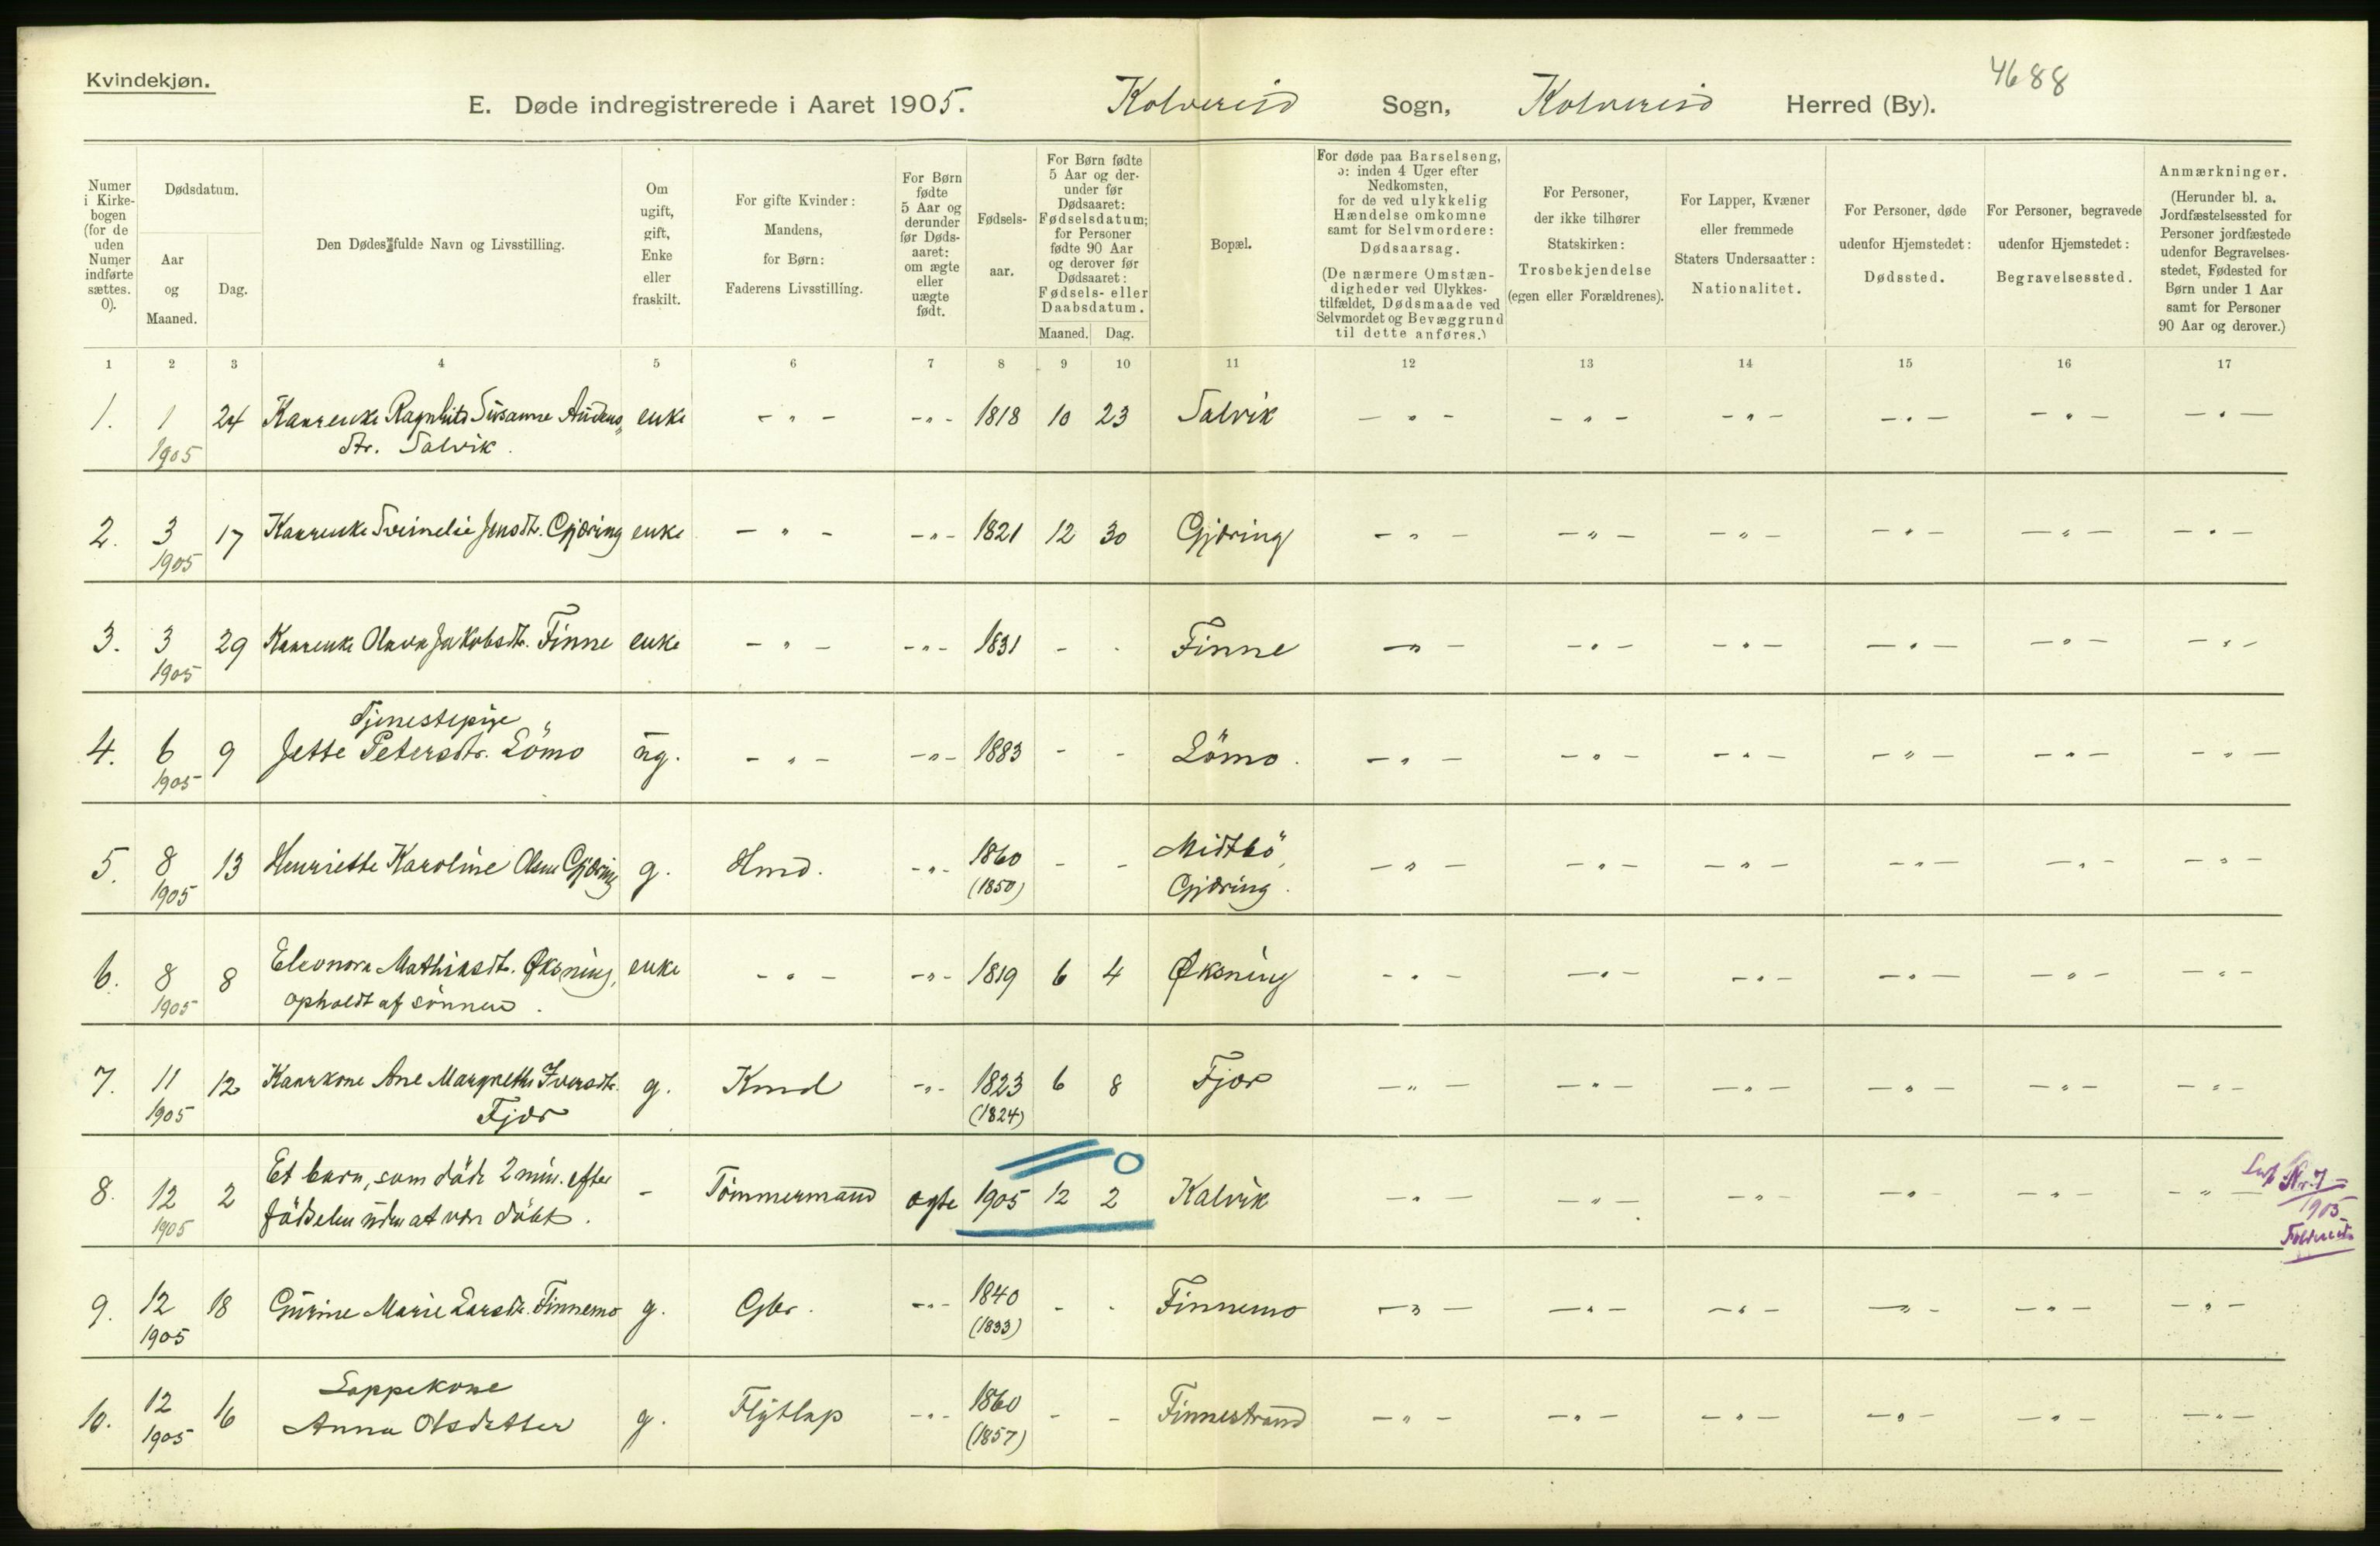 Kvindekjøn.
4688
E. Døde indregistrerede i Aaret 1905. Kolvereid Sogn, Kolvereid Herred (By).
Numer i Kirkebogen (for de uden Numer indførte sættes. 0).
Dødsdatum.
Aar og Maaned.
Dag.
Den Dødes fulde Navn og Livsstilling.
Om ugift, gift, Enke eller fraskilt.
For gifte Kvinder: Mandens, for Børn: Faderens Livsstilling.
For Børn fødte 5 Aar og derunder før Dødsaaret: om ægte eller uægte født.
Fødselsaar.
For Børn fødte 5 Aar og derunder før Dødsaaret: Fødselsdatum; for Personer fødte 90 Aar og derover før Dødsaaret: Fødsels- eller Daabsdatum.
Maaned. Dag.
Bopæl.
For døde paa Barselseng, ɔ: inden 4 Uger efter Nedkomsten, for de ved ulykkelig Hændelse omkomne samt for Selvmordere: Dødsaarsag.
(De nærmere Omstændigheder ved Ulykkestilfældet, Dødsmaade ved Selvmordet og Bevæggrund til dette anføres.)
For Personer, der ikke tilhører Statskirken: Trosbekjendelse (egen eller Forældrenes).
For Lapper, Kvæner eller fremmede Staters Undersaatter: Nationalitet.
For Personer, døde udenfor Hjemstedet: Dødssted.
For Personer, begravede udenfor Hjemstedet: Begravelsessted.
Anmærkninger.
(Herunder bl. a. Jordfæstelsessted for Personer jordfæstede udenfor Begravelsesstedet, Fødested for Børn under 1 Aar samt for Personer 90 Aar og derover.)
1 2 3 4 5 6 7 8 9 10 11 12 13 14 15 16 17
1. 1 24 Kaarenke Ragnhild Susanne Andens enke - " - - " - 1818 10 23 Salvik - " - - " - - " - - " - - " - - " -
1905 dtr. Salvik.
2. 3 17 Kaarenke Jensdtr. Gjæring enke - " - - " - 1821 12 30 Gjæring - " - - " - - " - - " - - " - - " -
1905
3. 3 29 Kaarenke Olava Jakobsdtr. Finne enke - " - - " - 1831 - - Finne - " - - " - - " - - " - - " - - " -
1905
Tjenestepige
4. 6 9 Jette Petersdtr. Lömo ug. - " - - " - 1883 - - Lömo. - " - - " - - " - - " - - " - - " -
1905
5. 8 13 Henriette Karoline Olsen Gjæring g. Hmd. - " - 1860 - - Midtbö, - " - - " - - " - - " - - " - - " -
1905 (1850) Gjæring.
6. 8 8 Eleonora Mathiasdtr. Øksning, enke - " - - " - 1819 6 4 Øksning - " - - " - - " - - " - - " - - " -
1905 opholdt af sönnen.
7. 11 12 Kaarkone Ane Margrethe Iversdtr. g. Kmd - " - 1823 6 8 Fjær - " - - " - - " - - " - - " - - " -
1905 Fjær (1824)
8. 12 2 Et barn, som döde 2 min. efter - Tömmermand ægte 1905 12 2 Kalvik - " - - " - - " - - " - - " - - " - Nr. 7
1905 födselen uden at være döbt. 1905
Foldereid
9. 12 18 Gurine Marie Larsdtr. Finnemo g. Gbr. - " - 1840 - - Finnemo - " - - " - - " - - " - - " - - " -
1905 (1833)
Lappekone
10. 12 16 Anna Olsdatter g. Flytlap - " - 1860 - - Finnestrand - " - - " - - " - - " - - " - - " -
1905 (1857)